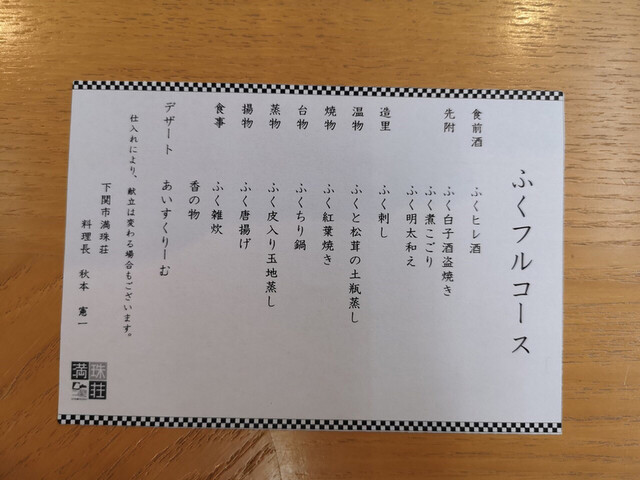 ふくフルコース
食前酒　ふくヒレ酒
先附　ふく白子酒盗焼き
ふく煮こごり
ふく明太和え
造里　ふく刺し
温物　ふくと松茸の土瓶蒸し
焼物　ふく紅葉焼き
台物　ふくちり鍋
蒸物　ふく皮入り玉地蒸し
揚物　ふく唐揚げ
食事　ふく雑炊
香の物
デザート　あいすくりーむ
仕入れにより、献立は変わる場合もございます。
下関市満珠荘
料理長　秋本　憲一
満珠荘